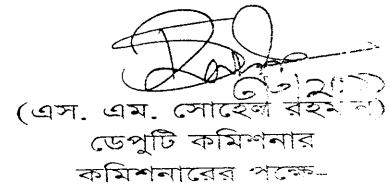 (এস. এম. সোহেল রহমান)
ডেপুটি কমিশনার
কমিশনারের পক্ষে-